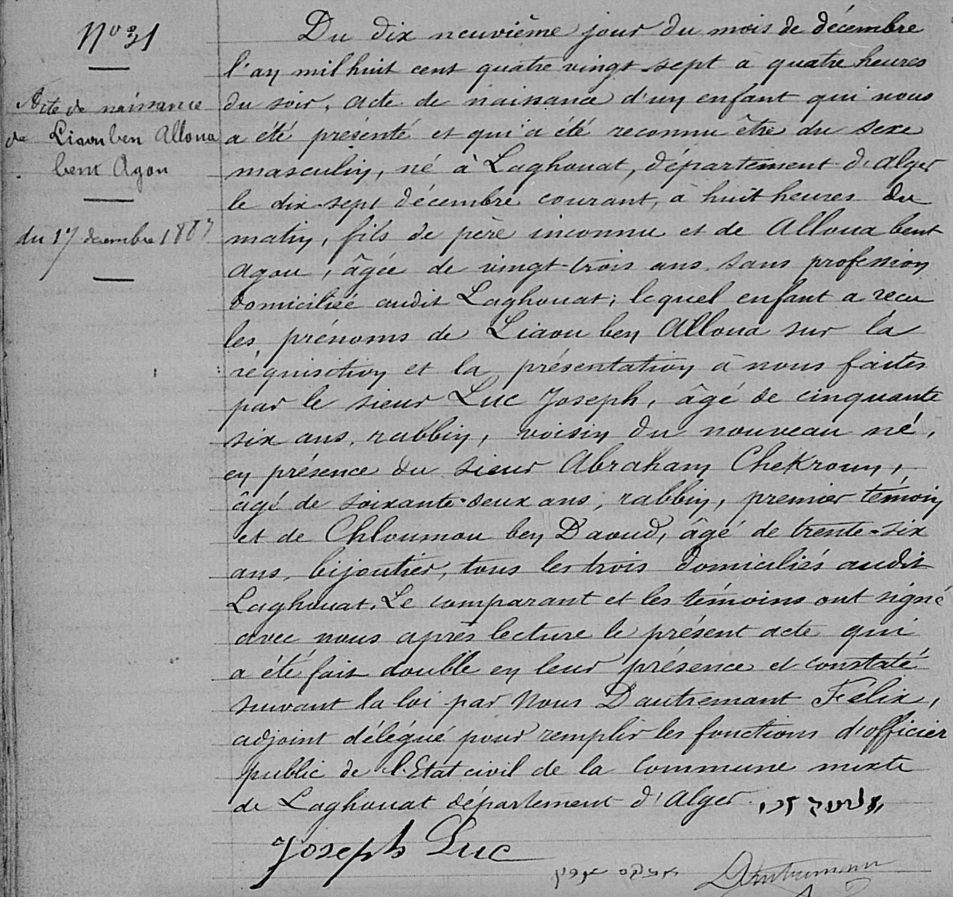 N° 31
Acte de naissance
de Liaou ben Alloua
bent Agou
du 17 décembre 1887
Du dix neuvième jour du mois de décembre
l'an mil huit cent quatre vingt sept a quatre heures
du soir, acte de naissance d'un enfant qui nous
a été présenté et qui a été reconnu être du sexe
masculin, né à Laghouat, département d'Alger
le dix-sept décembre courant, à huit heures du
matin, fils de père inconnu et de Alloua bent
Agou, âgée de vingt trois ans, sans profession
domiciliée audit Laghouat; lequel enfant a reçu
les prénoms de Liaou ben Alloua sur la
réquisition et la présentation à nous faites
par le sieur Luc Joseph, âgé de cinquante
six ans, rabbin, voisin du nouveau né,
en présence du sieur Abraham Chekroun,
âgé de soixante-deux ans, rabbin, premier témoin
et de Chloumou ben Daoud, âgé de trente-six
ans, bijoutier, tous les trois domiciliés audit
Laghouat. Le comparant et les témoins ont signé
avec nous après lecture le présent acte qui
a été fait double en leur présence et constaté
suivant la loi par Nous Dautremant Félix,
adjoint délégué pour remplir les fonctions d'officier
public de l'Etat civil de la Commune mixte
de Laghouat département d'Alger.
Joseph Luc